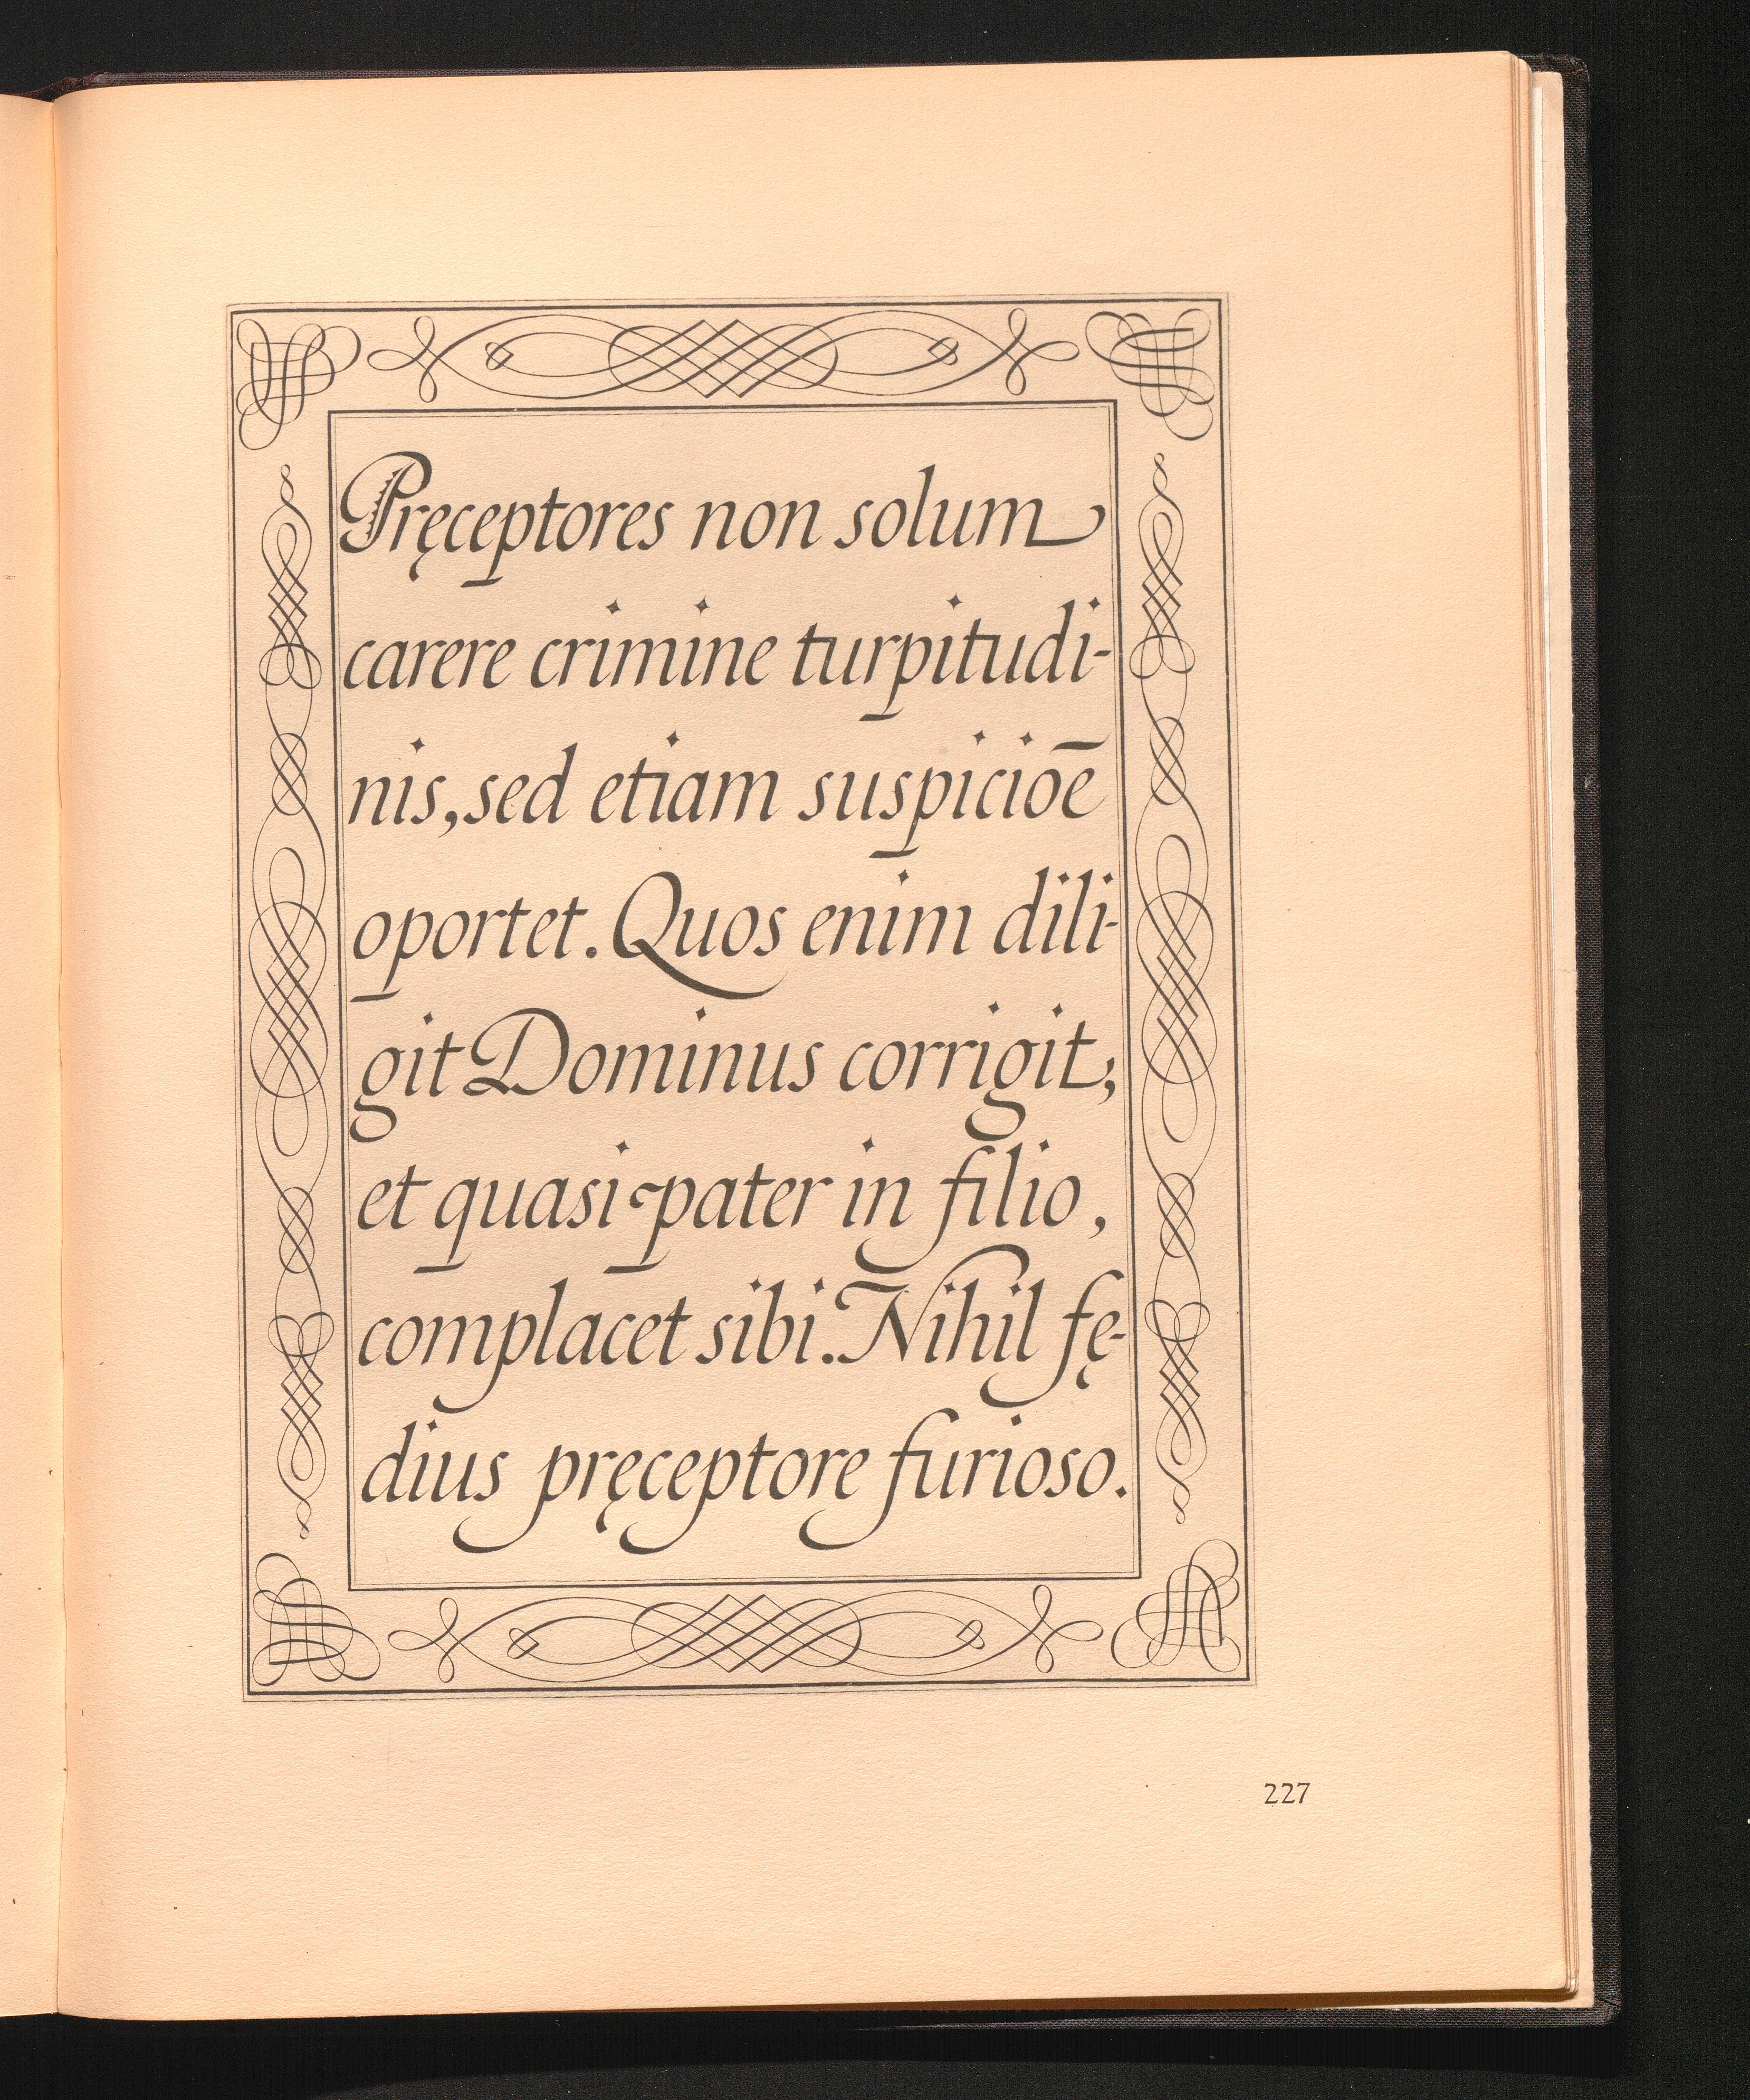 Pręceptores non solum
carere crimine turpitudi-
nis, sed etiam suspicioē
oportet. Quos enim dili-
git Dominus corrigit;
et quasi pater in filio,
complacet sibi. Nihil fę-
dius pręceptore furioso.
227